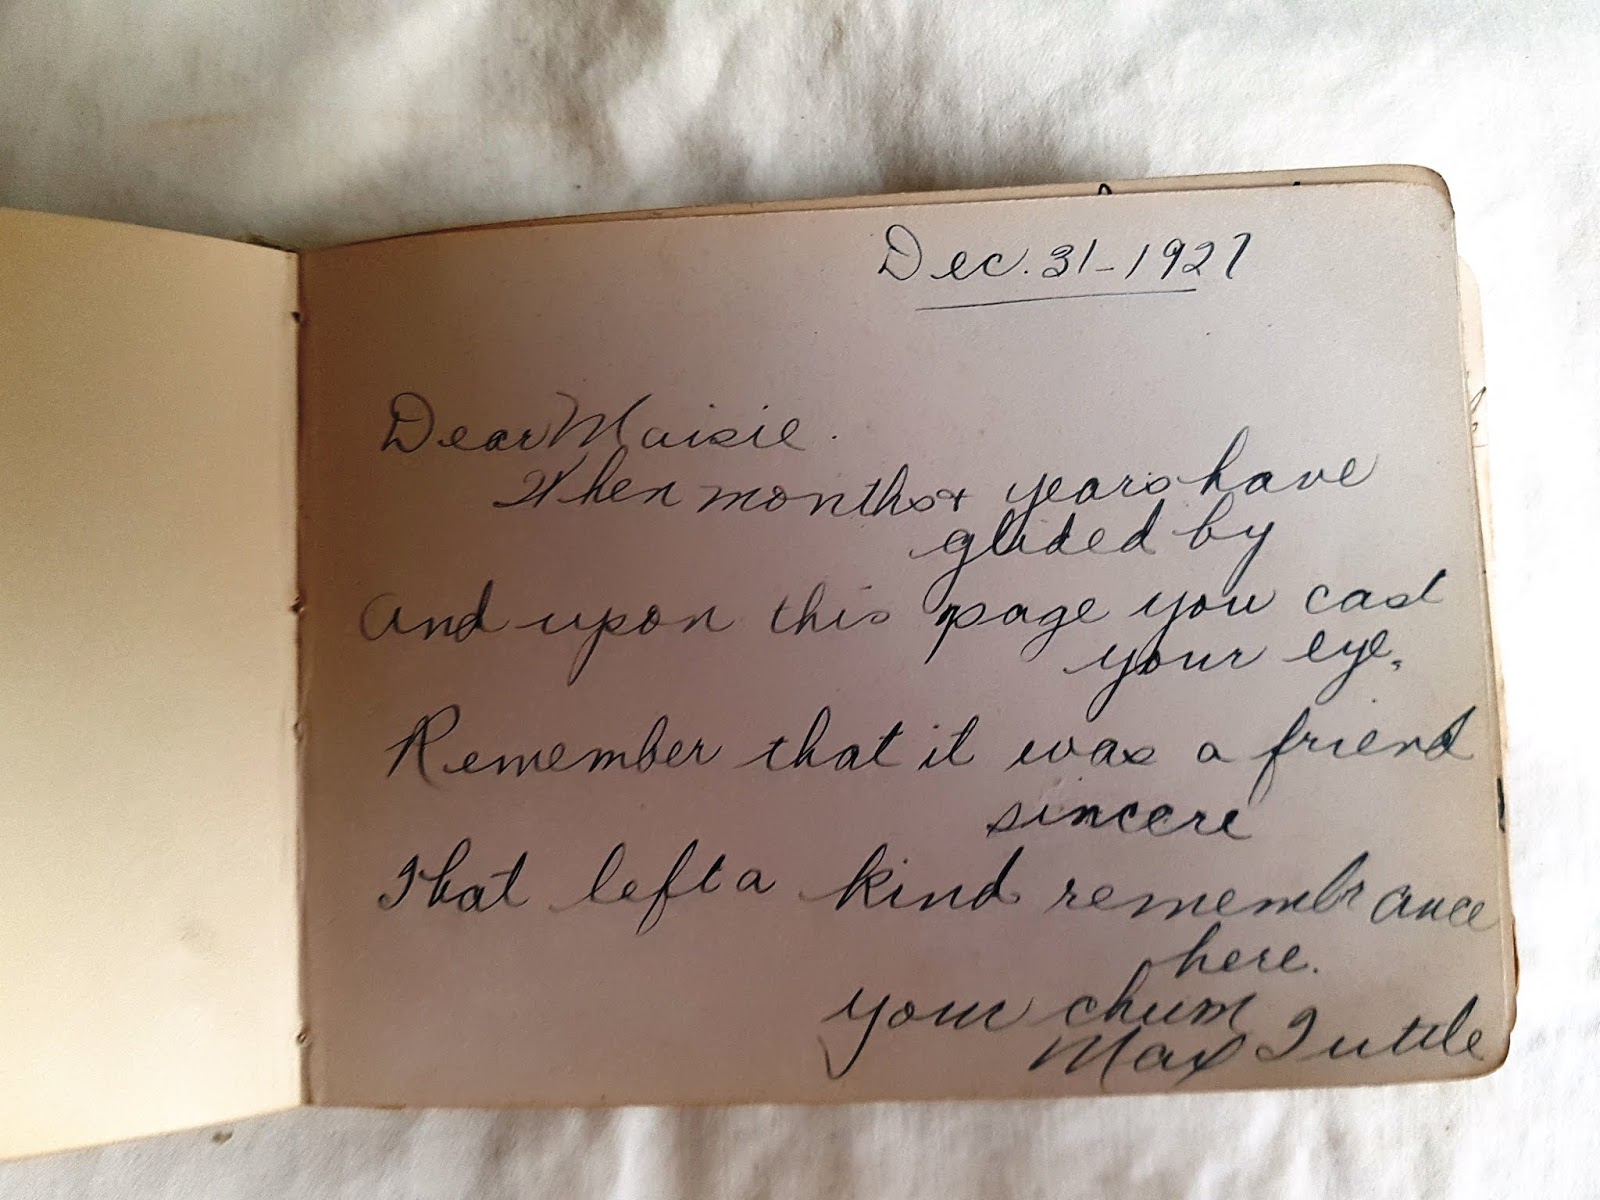 Dec. 31-1927
Dear Maisie.
When months & years have
glided by
And upon this page you cast
your eye,
Remember that it was a friend
sincere
That left a kind remembrance
here.
your chum
Max Tuttle